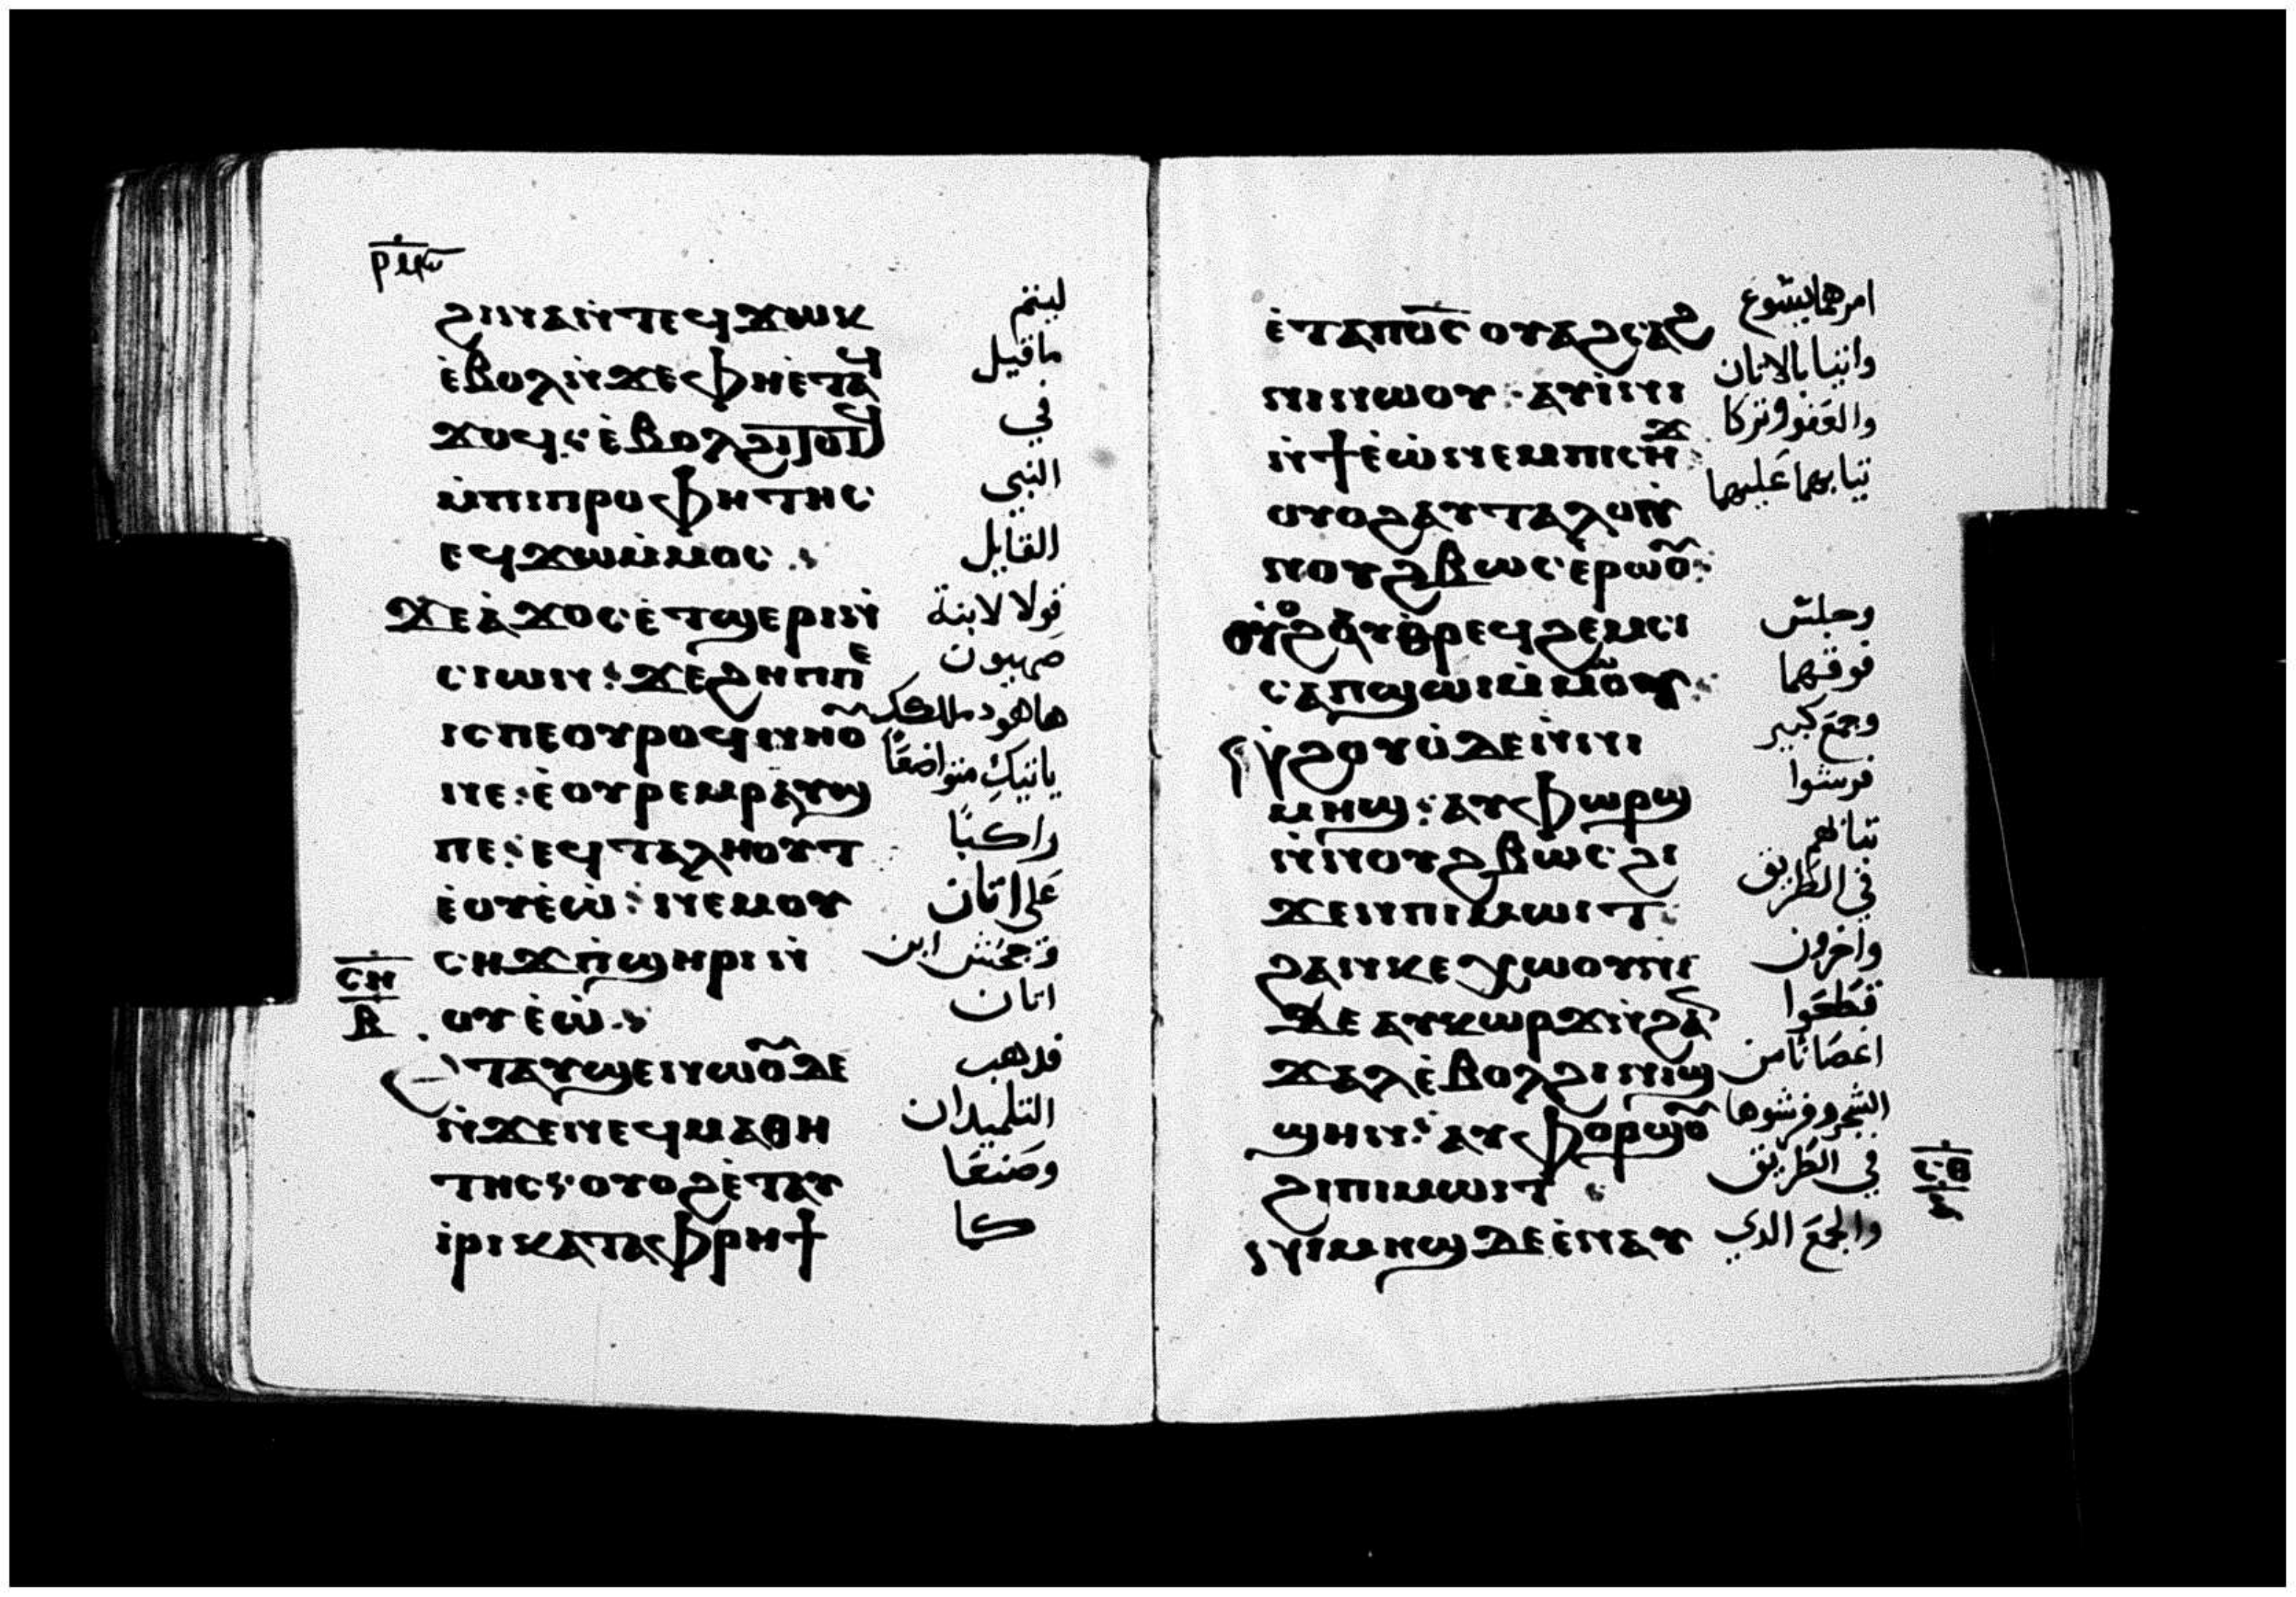 ϩⲓⲛⲁⲛ̀ⲧⲉϥϫⲱⲕ
ⲉ̀ⲃⲟⲗⲛ̀ϫⲉⲫⲏⲉ̀ⲧⲁϥ
ϫⲟϥ: ⲉ̀ⲃⲟⲗϩⲓⲧⲟⲧϥ
ⲙ̀ⲡⲓⲡⲣⲟⲫⲏⲧⲏⲥ
ⲉϥϫⲱⲙ̀ⲙⲟⲥ :
ϫⲉⲁ̀ϫⲟⲥⲉ̀ⲧϣⲉⲣⲓⲛ̀
ⲥⲓⲱⲛ: ϫⲉϩⲏⲡⲡⲉ
ⲓⲥⲡⲉⲟⲩⲣⲟϥⲛⲏⲟⲩ
ⲛⲉ: ⲉ̀ⲟⲩⲣⲉⲙⲣⲁⲩϣ
ⲡⲉ: ⲉϥⲧⲁⲗⲏⲟⲩⲧ
ⲉ̀ⲟⲩⲉ̀ⲱ̀: ⲛⲉⲙⲟⲩ
ⲥⲏϫⲡ̀ϣⲏⲣⲓⲛ̀
ⲟⲩⲉ̀ⲱ̀:
ⲉⲧⲁⲩϣⲉⲛⲱⲟⲩⲇⲉ
ⲛ̀ϫⲉⲛⲉϥⲙⲁⲑⲏ
ⲧⲏⲥ: ⲟⲩⲟϩⲉ̀ⲧⲁⲩ
ⲓ̀ⲣⲓⲕⲁⲧⲁⲫⲣⲏϯ
ⲥⲏ
ⲃ
ليتم
ما قيل
في
النبي
القايل
قولا لابنة
صهيون
هاهود ملكك
ياتيك متواضعًا
راكبًا
على اتان
وجحش ابن
اتان
فدهب
التلميدان
وصنعا
كما
ⲉ̀ⲧⲁⲡⲟ̅ⲥ̅ⲟⲩⲁϩⲥⲁϩ
ⲛⲓⲛⲱⲟⲩ: ⲁⲩⲓ̀ⲛⲓ
ⲛ̀ϯⲉ̀ⲱ̀ⲛⲉⲙⲡⲓⲥⲏϫ:
ⲟⲩⲟϩⲁⲩⲧⲁⲗⲟⲛ̀
ⲛⲟⲩϩⲃⲱⲥⲉ̀ⲣⲱⲟⲩ:
ⲟⲩⲟϩⲁⲩⲑⲣⲉϥϩⲉⲙⲥⲓ
ⲥⲁⲡϣⲱⲓⲙ̀ⲙⲱⲟⲩ:
ⲛ̀ϩⲟⲩⲟ̀ⲇⲉⲛ̀ⲛⲓ
ⲙⲏϣ: ⲁⲩⲫⲱⲣϣ
ⲛ̀ⲛⲟⲩϩⲃⲱⲥϩⲓ
ϫⲉⲛⲡⲓⲙⲱⲓⲧ:
ϩⲁⲛⲕⲉⲭⲱⲟⲩⲛⲓ
ⲇⲉⲁⲩⲕⲱⲣϫⲛ̀ϩⲁⲛ
ϫⲁⲗⲉ̀ⲃⲟⲗϩⲓⲛⲓϣ
ϣⲏⲛ: ⲁⲩⲫⲟⲣϣⲟⲩ
ϩⲓⲡⲓⲙⲱⲓⲧ :
ⲛⲓⲙⲏϣⲇⲉⲉ̀ⲛⲁⲩ
امرهما يسوع
واتيا بالاتان
والعفو وتركا
تيابهما عليهما
وجلس
فوقهما
وجمع كبير
فرشوا
تيابهم
في الطريق
واخرون
قطعوا
اغصانًا من
الشجر وفرشوها
في الطريق
والجمع الدي
ⲥⲑ